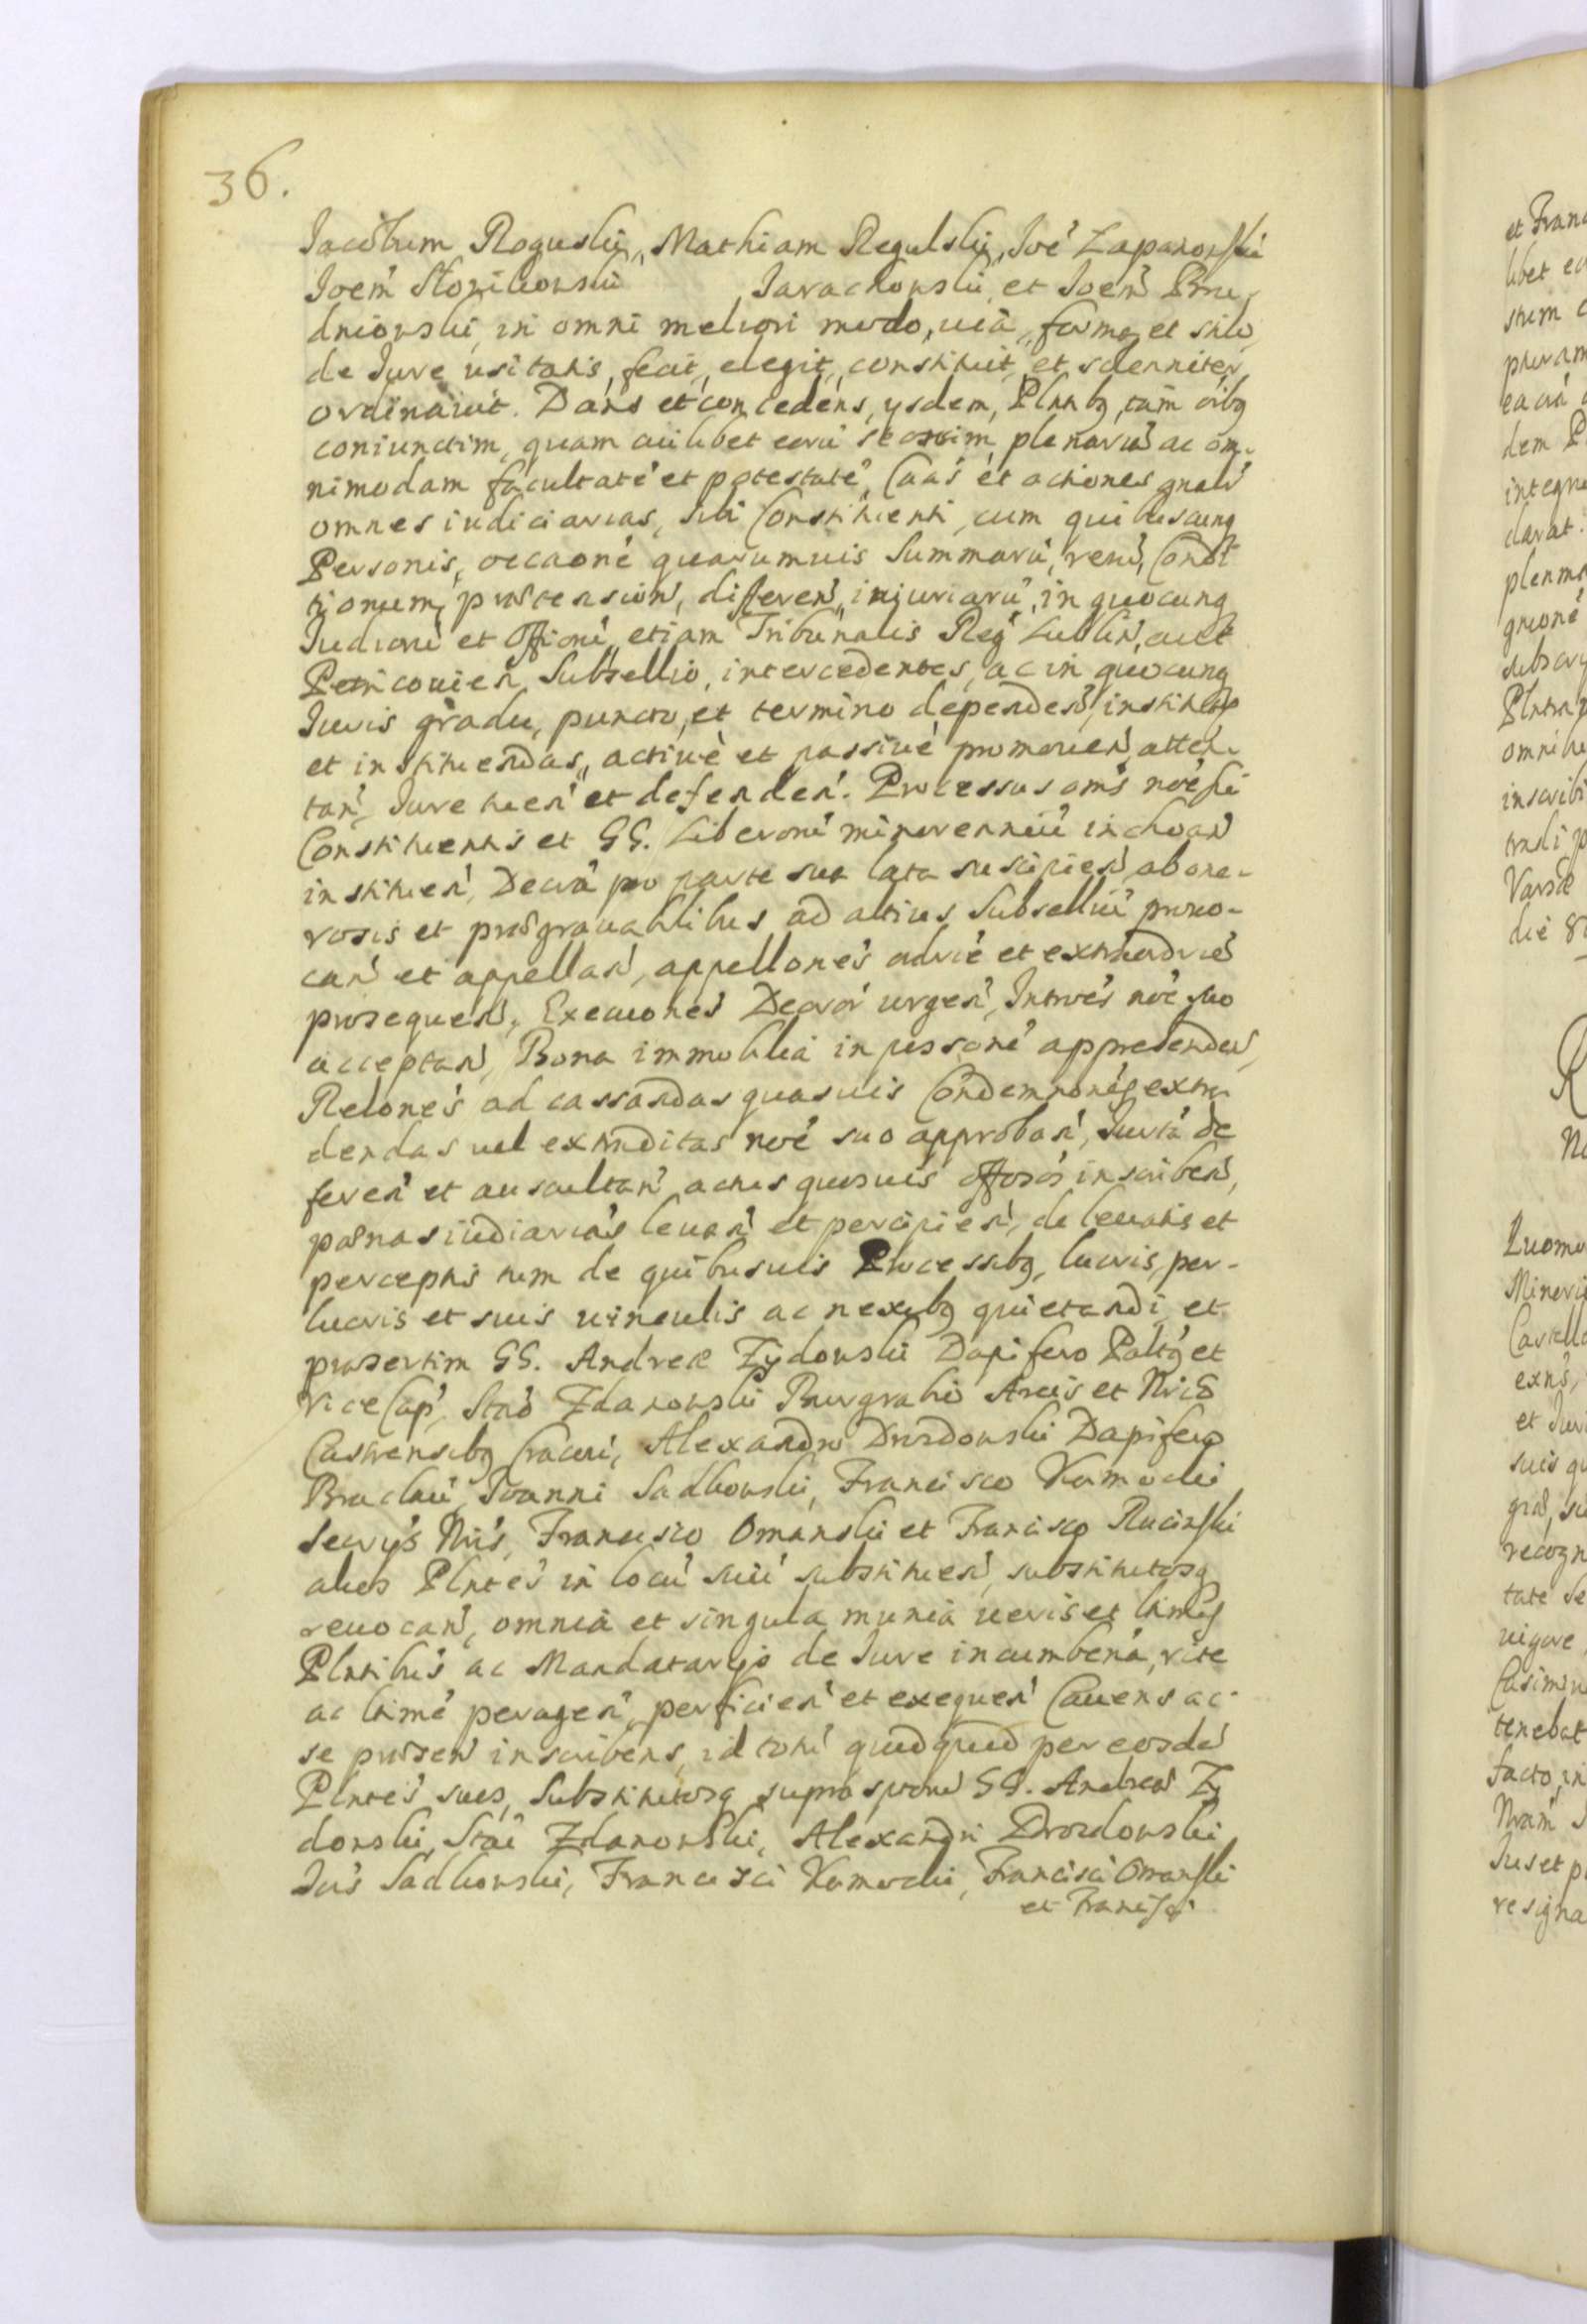 36.
Jacobum Roguski, Mathiam Regulski, Joē Lapanowski
Joem̄ Slonikowski Jarachowski, et Joem̄ Bru-
dniowski, in omni meliori modo, uiâ, formâ et stilo
de Jure usitatis, fecit, elegit, constituit, et solenniter
ordinauit. Dans et concedens, ysdem, Plntbg, tam oïbg
coniunctim, quam cuilibet eorū seorsim, plenariā ac om-
nimodam facultatē et potestatē, Caas et actiones gnalr
omnes iudiciarias, sibi Constituenti, cum quibuscunq
Personis, occaone quarumuis Summarū, rerū, Condi
tionum, prætension, differen, injuriarū, in quocunq
Judicio et Officio, etiam Tribunalis Regī Lublin, aut
Petricouien, Subsellio, intercedentes, ac in quocunq
Juris gradu, puncto, et termino dependen, institutas
et instituendas, actiuè et passiuè promouen, atten-
tan, Jure tuen et defenden. Processus oms noē sui
Constituentis et GG. Liberorū minorenniū inchoan
instituen, Decrā pro parte sua lata suscipien, ab one-
rosis et prægrauabilibus ad altius Subselliū prouo-
can et appellan, appellones adurē et extraadurē
prosequen, Execuones Decror urgen, Introēs noē suo
acceptan, Bona immobilia in possonē apprehenden,
Relones ad cassandas quasuis Condemnones extra
dendas uel extraditas noē suo approban, Jurta de
feren et auscultan actus quosuis offosos inscriben,
pœnas iudiarias leuan et percipien, de leuatis et
perceptis tum de quibusuis Processibg, lucris, per-
lucris et suis uinculis ac nexubg quietandi, et
præsertim GG. Andreæ Zydowski Dapifero Paltg et
Vice Cap, Stao Zdanowski Burgrabio Arcis et Nrio
Castrensibg Cracouī, Alexandro Drozdowski Dapifero
Braclau, Joanni Sadkowski, Francisco Komocki
Seruys Nris, Francisco Omanski et Francisco Rucinski
alios Plntes in locū suū substituen, substitutosq
reuocan, omnia et singula munia ueris et ltimis
Plntibus ac Mandatarys de Jure incumben̄a, rite
ac ltimē peragen, perficien et exequen Cauens ac
se præsen inscribens, id totū quidquid per eosdē
Plntes suos, Substitutosq supra sptorū GG. Andreæ Zy
dowski, Stai Zdanowski, Alexandri Drozdowski
Jois Sadkowski, Francisci Komocki, Francisci Omanski
et Francisci